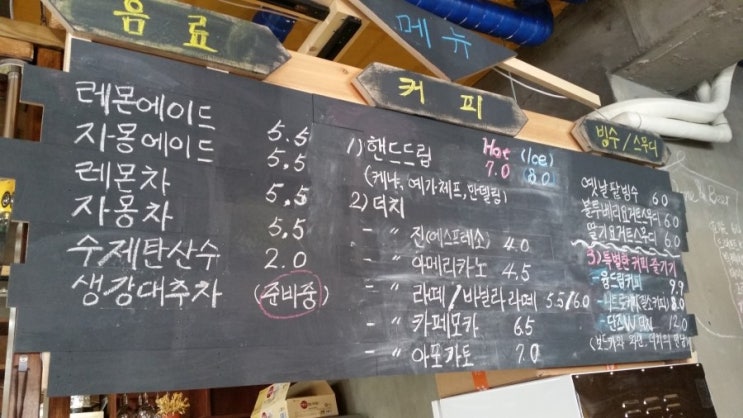 음료
레몬에이드 5.5
자몽에이드 5.5
레몬차 5.5
자몽차 5.5
수제탄산수 2.0
생강대추차 (준비중)
메뉴
커피
Hot (Ice)
1) 핸드드립 7.0 8.0
(케냐, 예가체프, 만델링)
2) 더치
- 〃 진(에스프레소) 4.0
- 〃 아메리카노 4.5
- 〃 라떼/바닐라라떼 5.5/6.0
- 〃 카페모카 6.5
- 〃 아포카토 7.0
빙수/스무디
옛날팥빙수 6.0
블루베리요거트스무디 6.0
딸기요거트스무디 6.0
3) 특별한 커피 즐기기
9.9
8.0
12.0